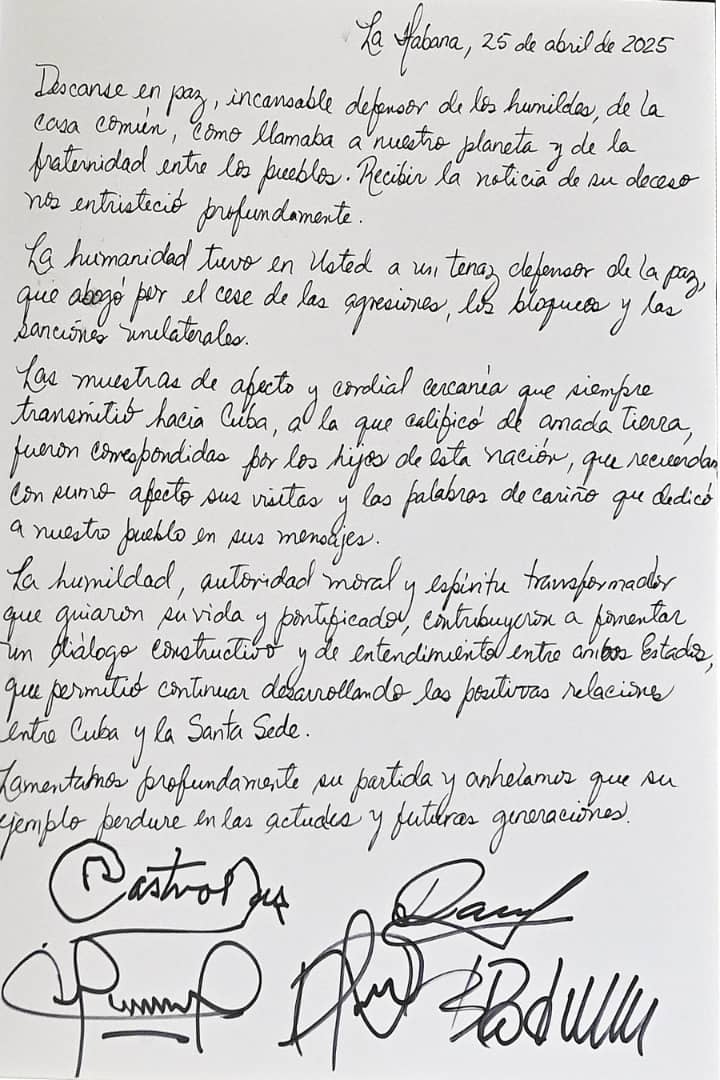 La Habana, 25 de abril de 2025
Descanse en paz, incansable defensor de los humildes, de la
casa común, como llamaba a nuestro planeta y de la
fraternidad entre los pueblos. Recibir la noticia de su deceso
nos entristeció profundamente.
La humanidad tuvo en Usted a un tenaz defensor de la paz,
que abogó por el cese de las agresiones, los bloqueos y las
sanciones unilaterales.
Las muestras de afecto y cordial cercanía que siempre
transmitió hacia Cuba, a la que calificó de amada tierra,
fueron correspondidas por los hijos de esta nación, que recuerdan
con sumo afecto sus visitas y las palabras de cariño que dedicó
a nuestro pueblo en sus mensajes.
La humildad, autoridad moral y espíritu transformador
que guiaron su vida y pontificado, contribuyeron a fomentar
un diálogo constructivo y de entendimiento entre ambos Estados,
que permitió continuar desarrollando las positivas relaciones
entre Cuba y la Santa Sede.
Lamentamos profundamente su partida y anhelamos que su
ejemplo perdure en las actuales y futuras generaciones.